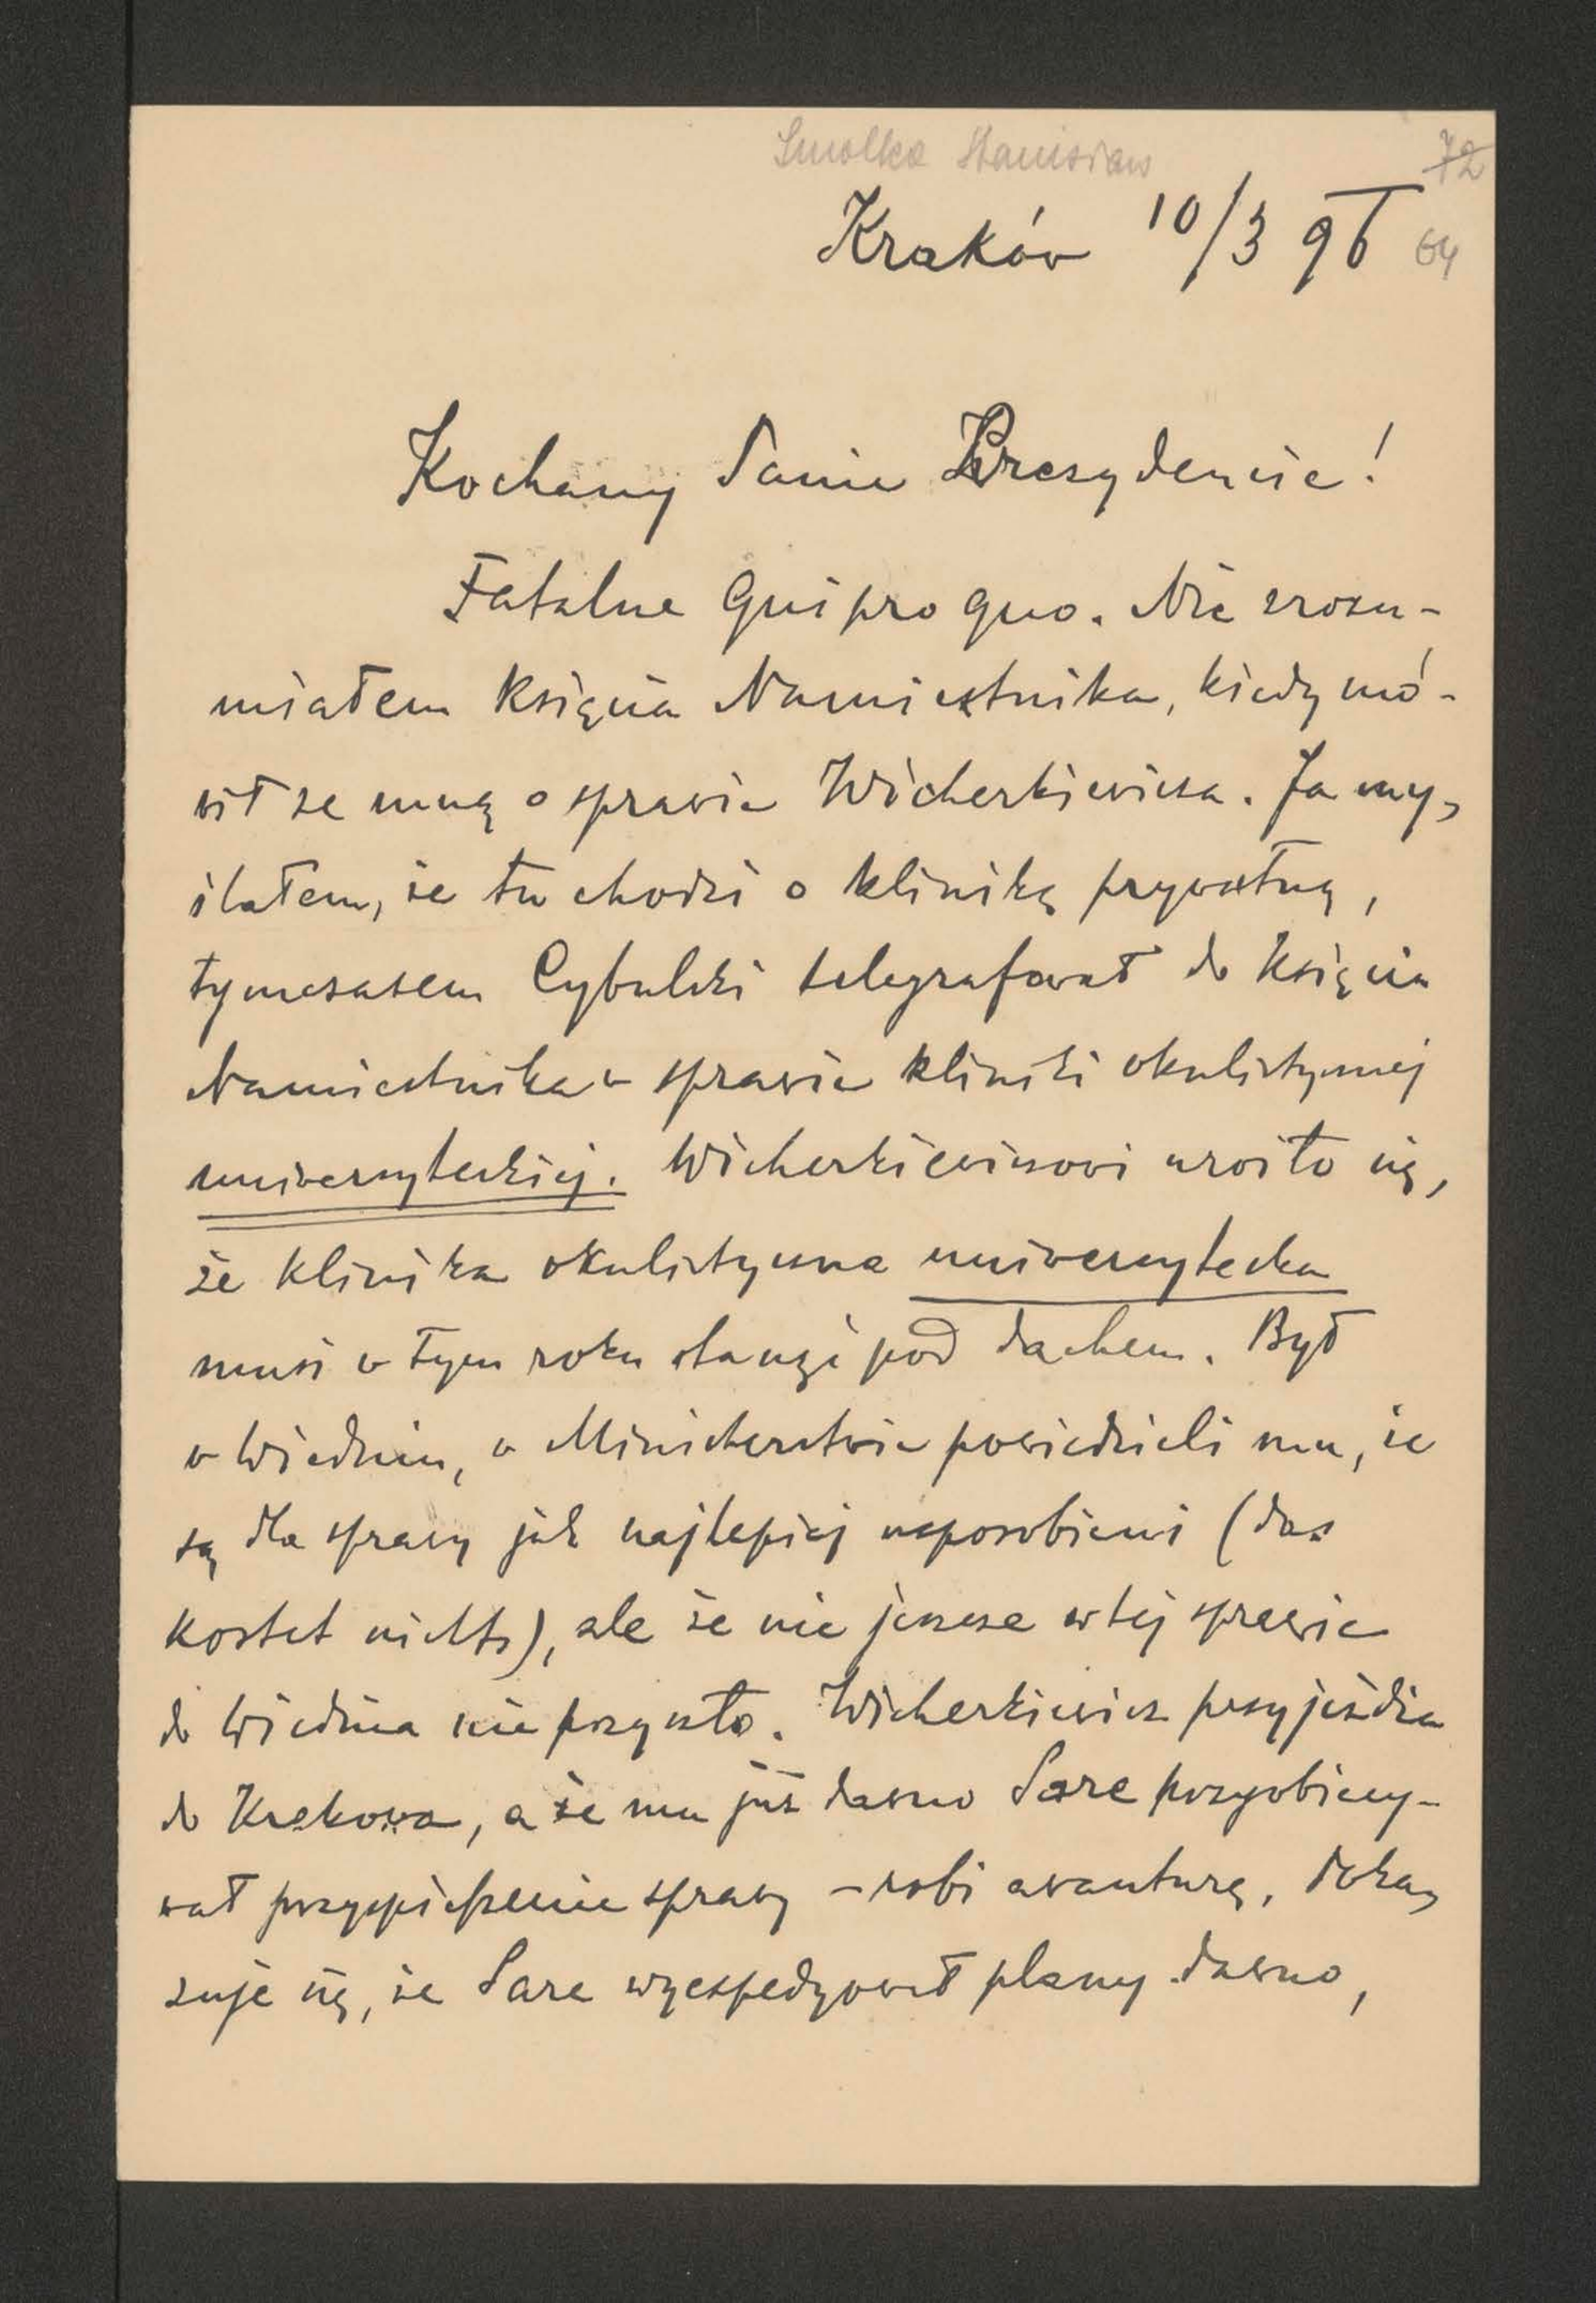 Smolka Stanisław
72
Kraków 10/3 96
64
Kochany Panie Prezydencie!
Fatalne Qui pro quo. Nie zrozu-
miałem Księcia Namiestnika, kiedy mó-
wił ze mną o sprawie Wicherkiewicza. Ja my-
ślałem, że tu chodzi o klinikę prywatną,
tymczasem Cybulski telegrafował do Księcia
Namiestnika w sprawie kliniki okulistycznej
uniwersyteckiej. Wicherkiewiczowi uroiło się,
że klinika okulistyczna uniwersytecka
musi w tym roku stanąć pod dachem. Był
w Wiedniu, w Ministerstwie powiedzieli mu, że
są dla sprawy jak najlepiej usposobieni (das
kostet nichts), ale że nic jeszcze w tej sprawie
do Wiednia nie przyszło. Wicherkiewicz przyjeżdża
do Krakowa, a że mu już dawno Sare przyobiecy-
wał przyspieszenie sprawy – robi awanturę,
zuje się, że Sare wyexpedyował plany dawno,